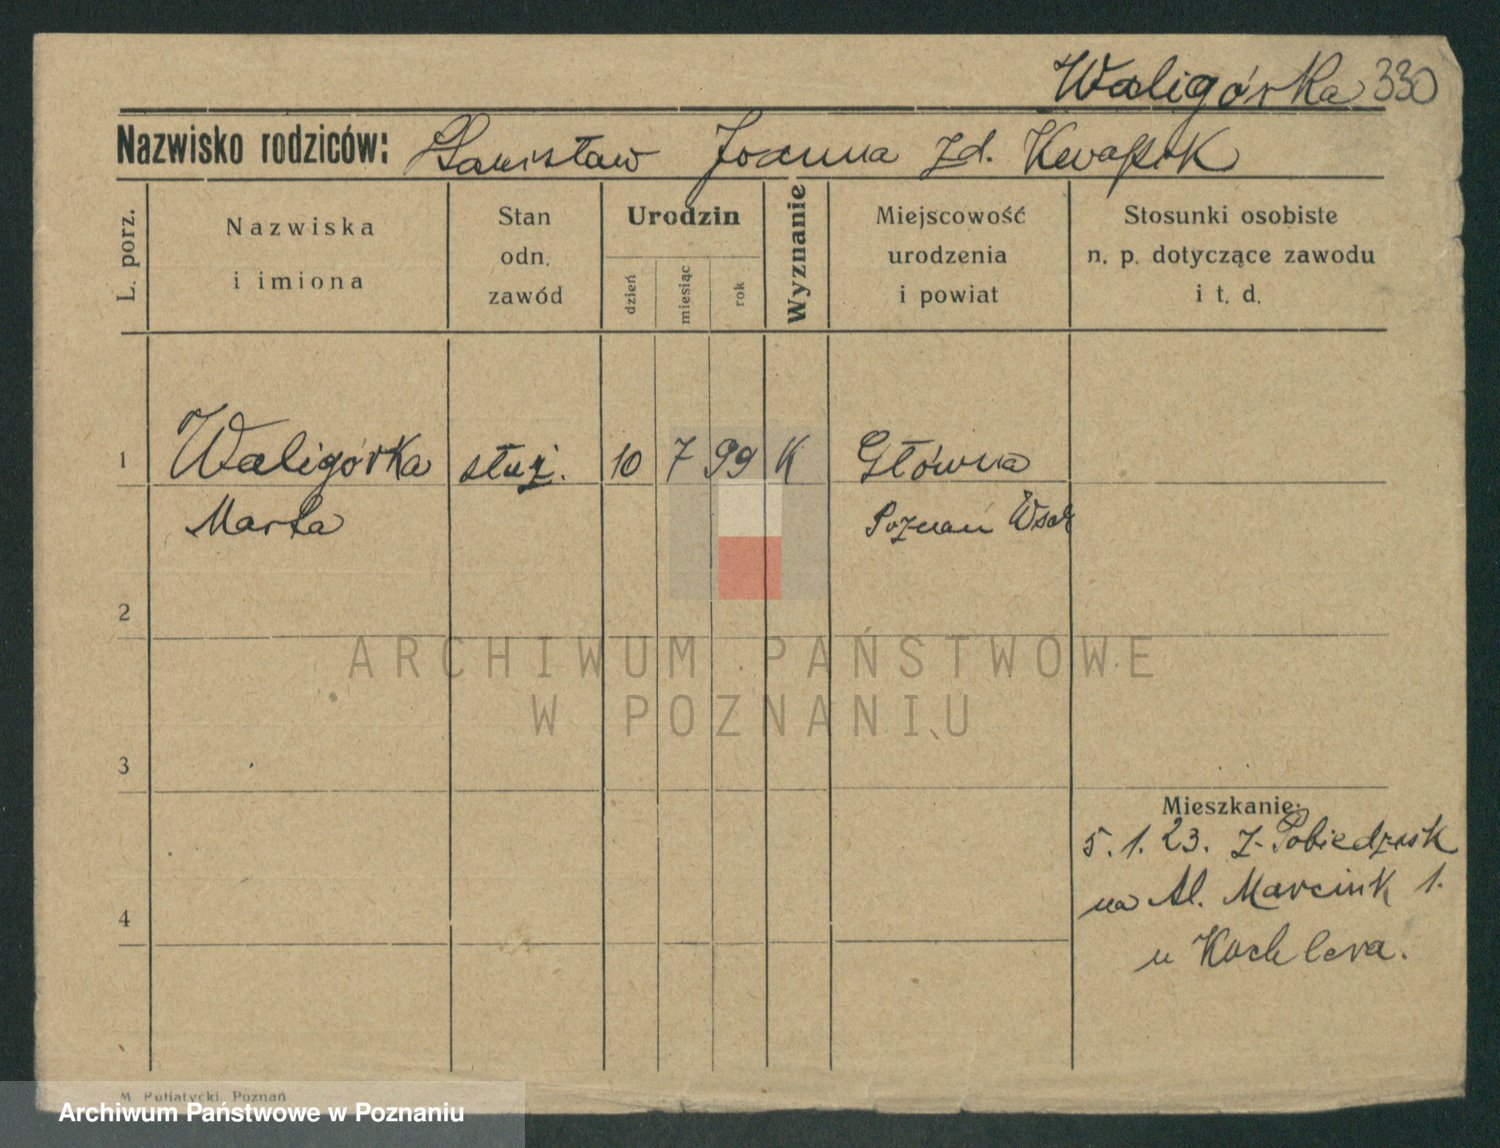 Waligórka 330
Nazwisko rodziców: Stanisław Joanna zd. Kwapik
L. porz.
Nazwiska
i imiona
Stan
odn.
zawód
Urodzin
dzień
miesiąc
rok
Wyznanie
Miejscowość
urodzenia
i powiat
Stosunki osobiste
n. p. dotyczące zawodu
i t. d.
1 Waligórka służ. 10 7 99 K Główna
Marta Poznań Wsch
2
ARCHIWUM PAŃSTWOWE
W POZNANIU
3
Mieszkanie:
5.1.23. z Pobiedzisk
na Al. Marcink 1.
4
u Kochlera.
M. Putiatycki, Poznań
Archiwum Państwowe w Poznaniu